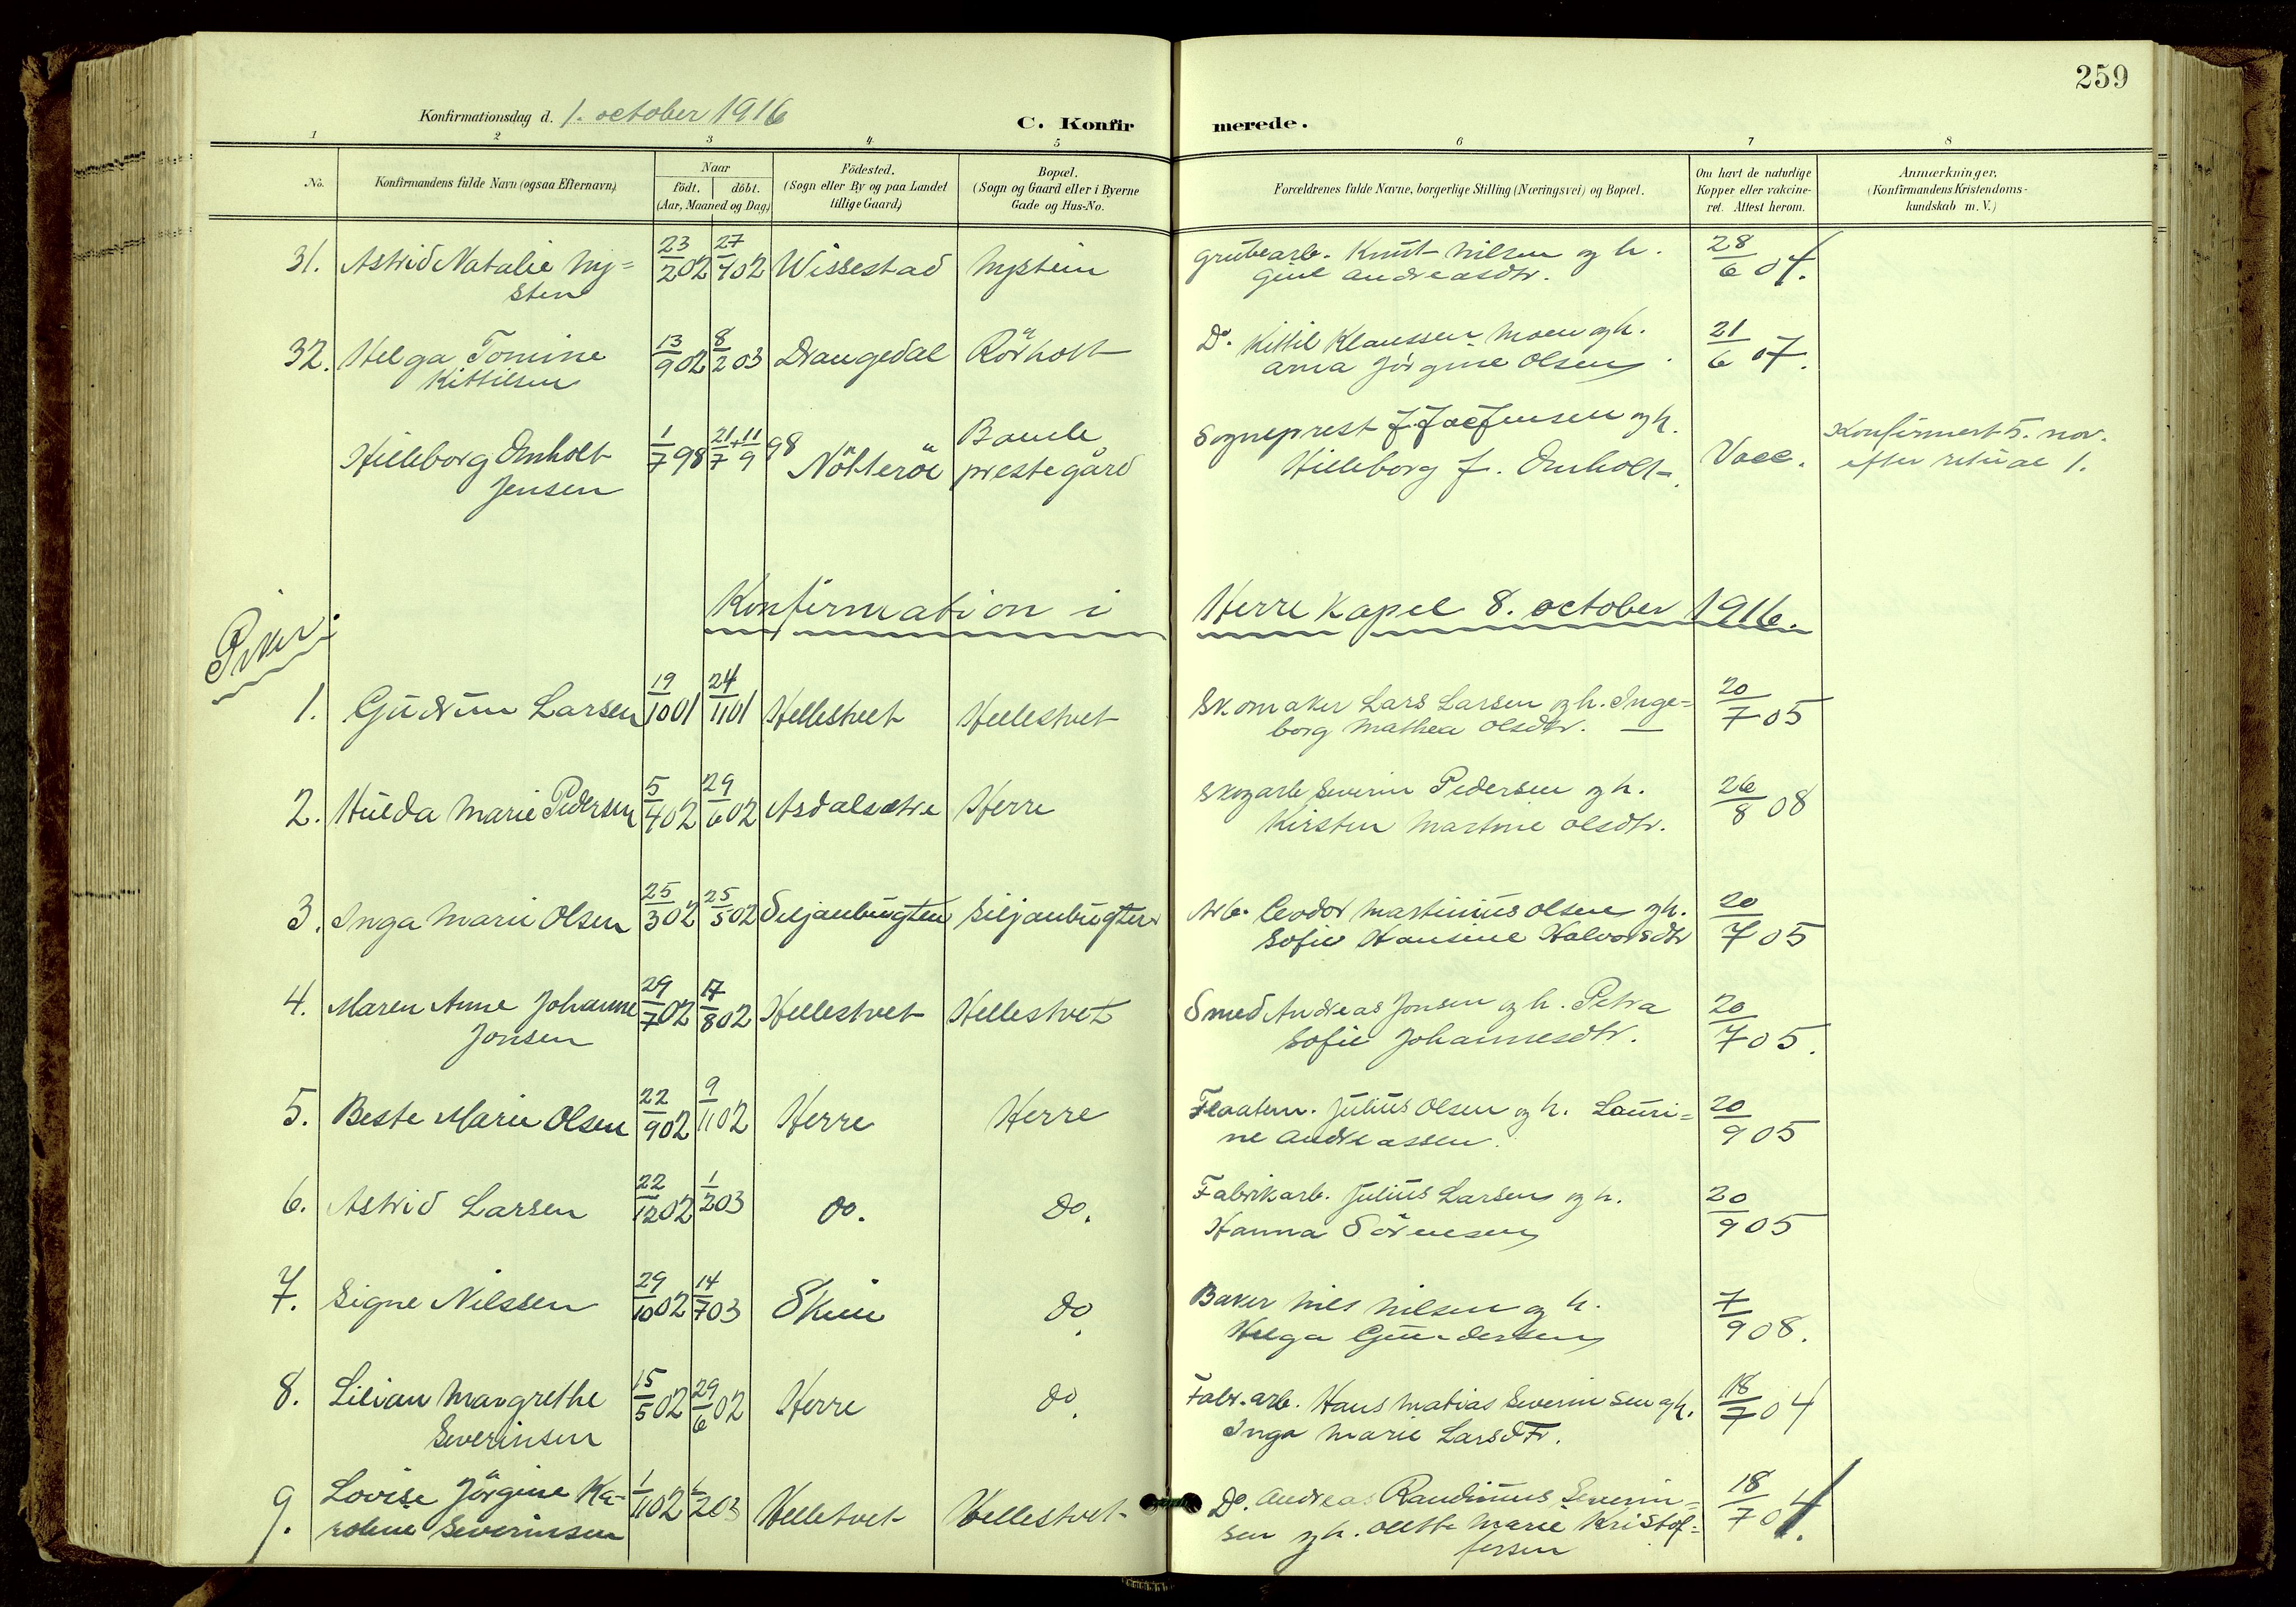 259
Konfirmationsdag d. 1. october 1916
C. Konfirmerede.
1 2 3 4 5 6 7 8
No.
Konfirmandens fulde Navn (ogsaa Efternavn)
Naar
födt. döbt.
(Aar, Maaned og Dag)
Födested.
(Sogn eller By og paa Landet
tillige Gaard)
Bopæl.
(Sogn og Gaard eller i Byerne
Gade og Hus-No.
Forældrenes fulde Navne, borgerlige Stilling (Næringsvei) og Bopæl.
Om havt de naturlige
Kopper eller vakcine-
ret. Attest herom.
Anmærkninger,
(Konfirmandens Kristendoms-
kundskab m. V.)
31. Astrid Natalie Ny=
sten
23/2 02 27/4 02 Wissestad Nystein
grubearb. Knut Nilsen og h.
Gine Andreasdtr.
28/6 04.
32. Helga Tomine
Kittilsen
13/9 02 8/2 03 Drangedal Rörholt
Do. Kittil Klaussen Moen og h.
Anna Jörgine Olsen
21/6 07.
Hilleborg Omholt
Jensen
1/7 98 21/7 + 11/9 98 Nötteröe
Bamle
prestegård
Sogneprest J. Jac Jensen og h.
Hilleborg f. Omholt
Vacc.
Konfirmert 5. nov.
efter ritual 1.
Konfirmation i Herre Kapel 8. october 1916.
Piker:
1. Gudrun Larsen 19/10 01 24/11 01 Hellestvet Hellestvet
Skomaker Lars Larsen og h. Inge=
borg Mathea Olsdtr.
20/7 05
2. Hulda Marie Pedersen 5/4 02 29/6 02 Asdalsætre Herre
Skogarb Severin Pedersen og h.
Kirsten Martine Olsdtr.
26/8 08
3. Inga Marie Olsen 25/3 02 25/5 02 Siljanbugten Siljanbugten
Arb. Teodor Martinius Olsen og h.
Sofie Hansine Halvorsdtr
20/7 05
4. Maren Anne Johanne
Jonsen
29/7 02 17/8 02 Hellestvet Hellestvet
Smed Andreas Jonsen og h. Petra
Sofie Johannesdtr.
20/7 05.
5. Beste Marie Olsen 22/9 02 9/11 02 Herre Herre
Flaatem. Julius Olsen og h. Lauri=
ne Andreassen.
20/9 05
6. Astrid Larsen 22/12 02 1/2 03 do. do.
Fabrikarb. Julius Larsen og h.
Hanna Sörensen
20/9 05
7. Signe Nilssen 29/10 02 14/7 03 Skien do.
Baker Nils Nilsen og h.
Helga Gundersen
7/9 08.
8. Lilian Margrethe
Severinsen
15/5 02 29/6 02 Herre do.
Fabr. arb. Hans Matias Severinsen og h.
Inga Marie Larsdtr.
18/7 04
9. Lovise Jörgine Ka-
roline Severinsen
1/11 02 1/2 03 Helletvet Hellestvet
Do. Andreas Randinus Severin=
sen og h. Olette Marie Kristof=
fersen
18/7 04.